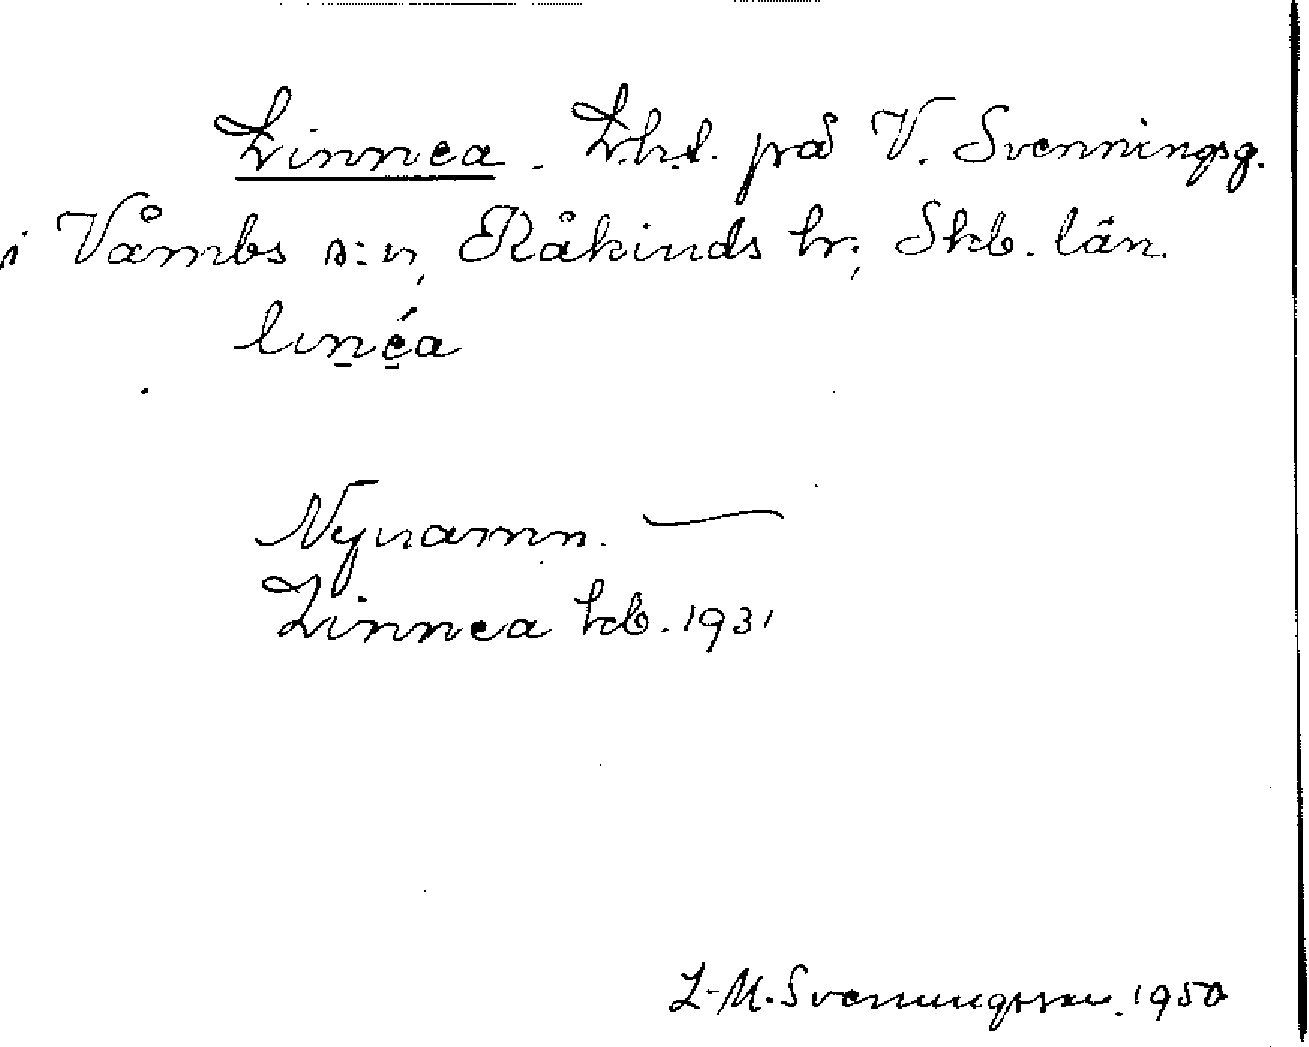 Linnea. L.h.t. på V. Svenningsg.
i Våmbs s:n, Kåkinds hr; Skb. län.
linéa
Nynamn.
Linnea kb. 1931
L-M. Svenningsson. 1950